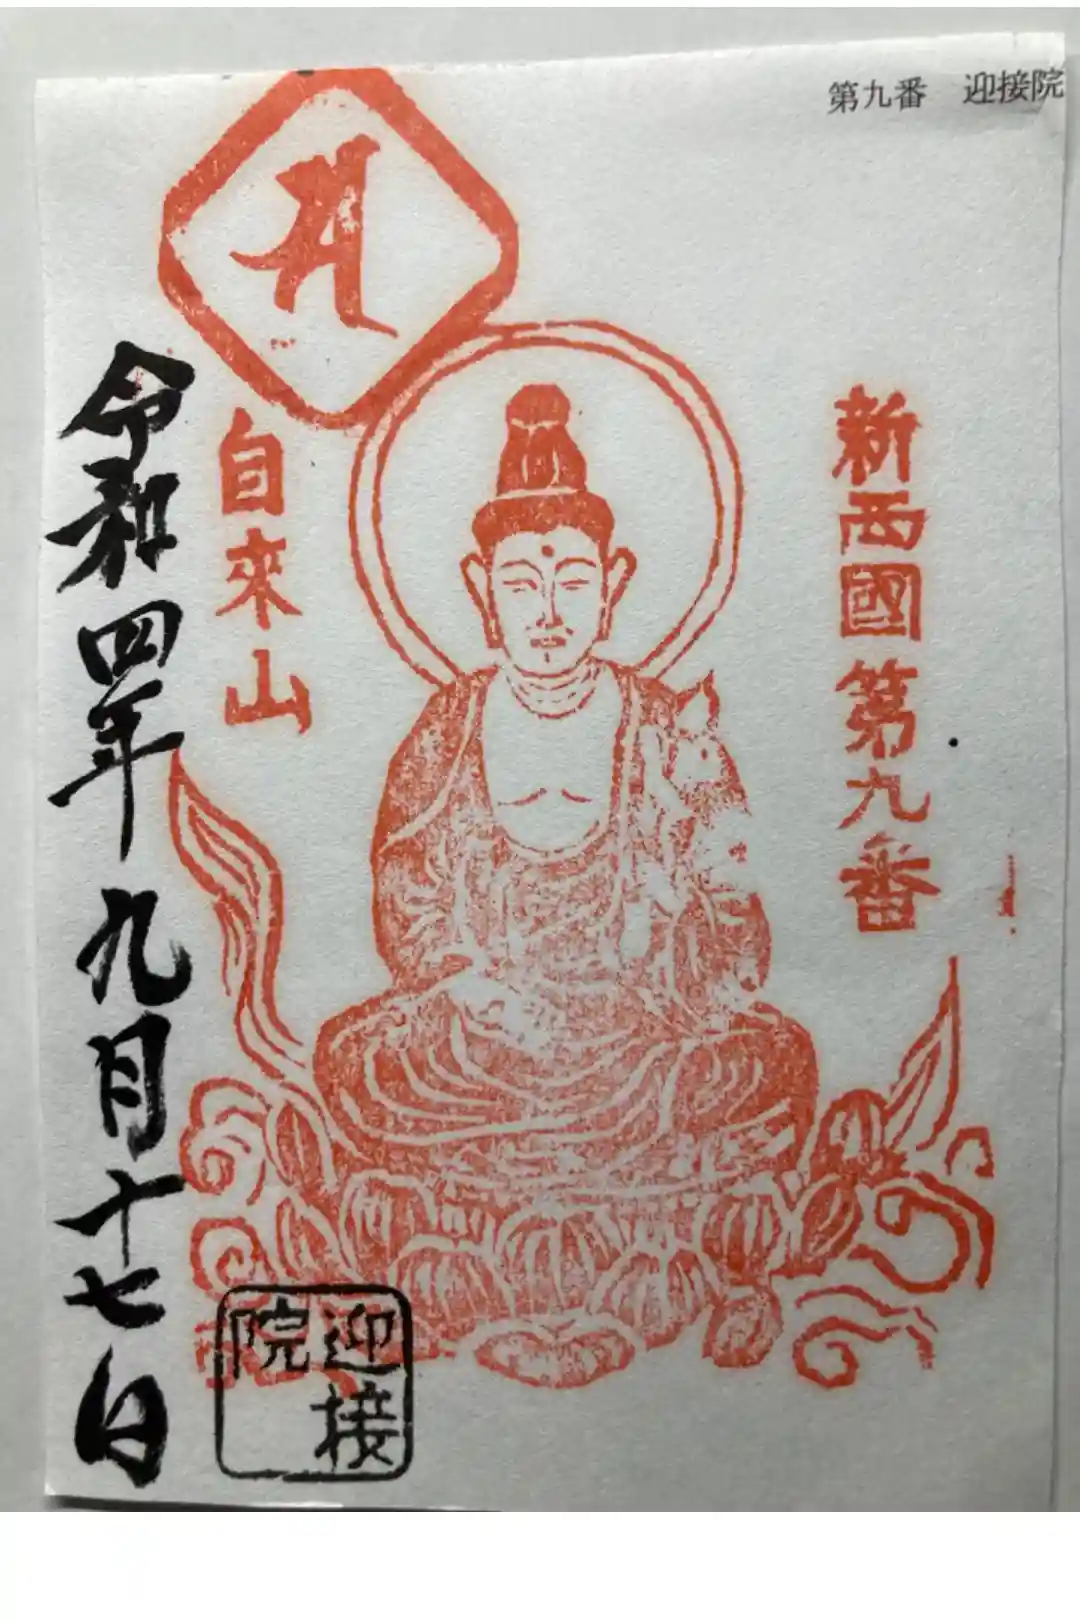 第九番　迎接院
新西國第九番
自來山
令和四年 九月十七日
迎接
院